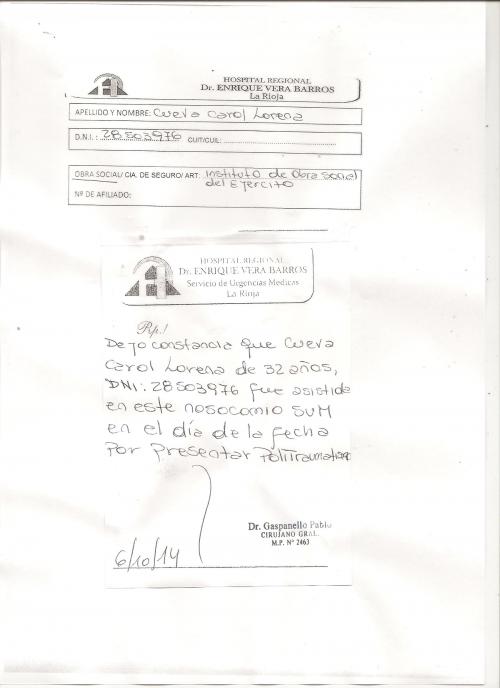 HOSPITAL REGIONAL
Dr. ENRIQUE VERA BARROS
La Rioja
APELLIDO Y NOMBRE: Cueva Carol Lorena
D.N.I.: 28503976 CUIT/CUIL:
OBRA SOCIAL/ CIA. DE SEGURO/ ART: Instituto de Obra Social
del Ejercito
Nº DE AFILIADO:
HOSPITAL REGIONAL
Dr. ENRIQUE VERA BARROS
Servicio de Urgencias Medicas
La Rioja
Rp./
Dejo constancia que Cueva
Carol Lorena de 32 años,
DNI: 28503976 fue asistida
en este nosocomio SUM
en el día de la fecha
Por Presentar
Dr. Gaspanello Pablo
CIRUJANO GRAL.
M.P. Nº 2463
6/10/14